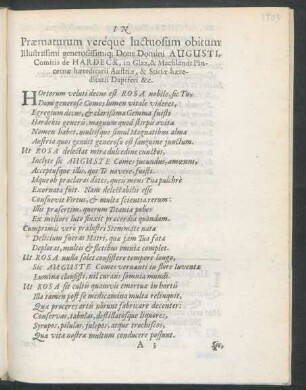 IN
Præmaturum veréque luctuosum obitum
Illustrissimi generosissimiq; Dom: Domini AUGUSTI,
Comitis de HARDECK, in Glaz, & Machlandt Pin-
cernæ hæreditarii Austriæ, & Stiriæ hære-
ditarii Dapiferi &c.
Hortorum veluti decus est ROSA nobile, sic Tu
Dum generose Comes lumen vitale videres,
Egregium decus, & clarissima Gemma fuisti
Hardekii generis, magnum quod stirpis avitæ
Nomen habet, multisque simul Magnatibus alma
Austria quos genuit generose est sanguine junctum.
Ut ROSA delectat mira dulcedine cunctos,
Inclyte sic AUGUSTE Comes jucundus, amœnus,
Acceptusque illis, quos Te novere, fuisti.
Idque ob præclaras dotes, queis mens Tua pulchrè
Exornata fuit. Nam delectabilis esse
Consuevit Virtus, & multa scientia rerum:
Illis præsertim, quorum Titania pubes
Ex meliore luto finxit præcordia quondam.
Cumprimis verò præillustri Stemmate natæ
Delicium fueras Matri, quæ jam Tua fata
Deplorat, multis & fletibus omnia complet.
Ut ROSA nulla solet consistere tempore longo,
Sic AUGUSTE Comes vernanti in flore juventæ
Lumina clausisti, nil curans somnia mundi.
Ut ROSA sit cultu quamvis emortua in hortû
Illa tamen post se medicamina multa relinquit,
Quæ proceres arti vitrûs fabricare decenter:
Conservas, tabulas, destillatosque liquores,
Syrupos, pilulas, julepos, atque trochiscos,
Quæ vitæ nostræ multum conducere possunt.
A 3